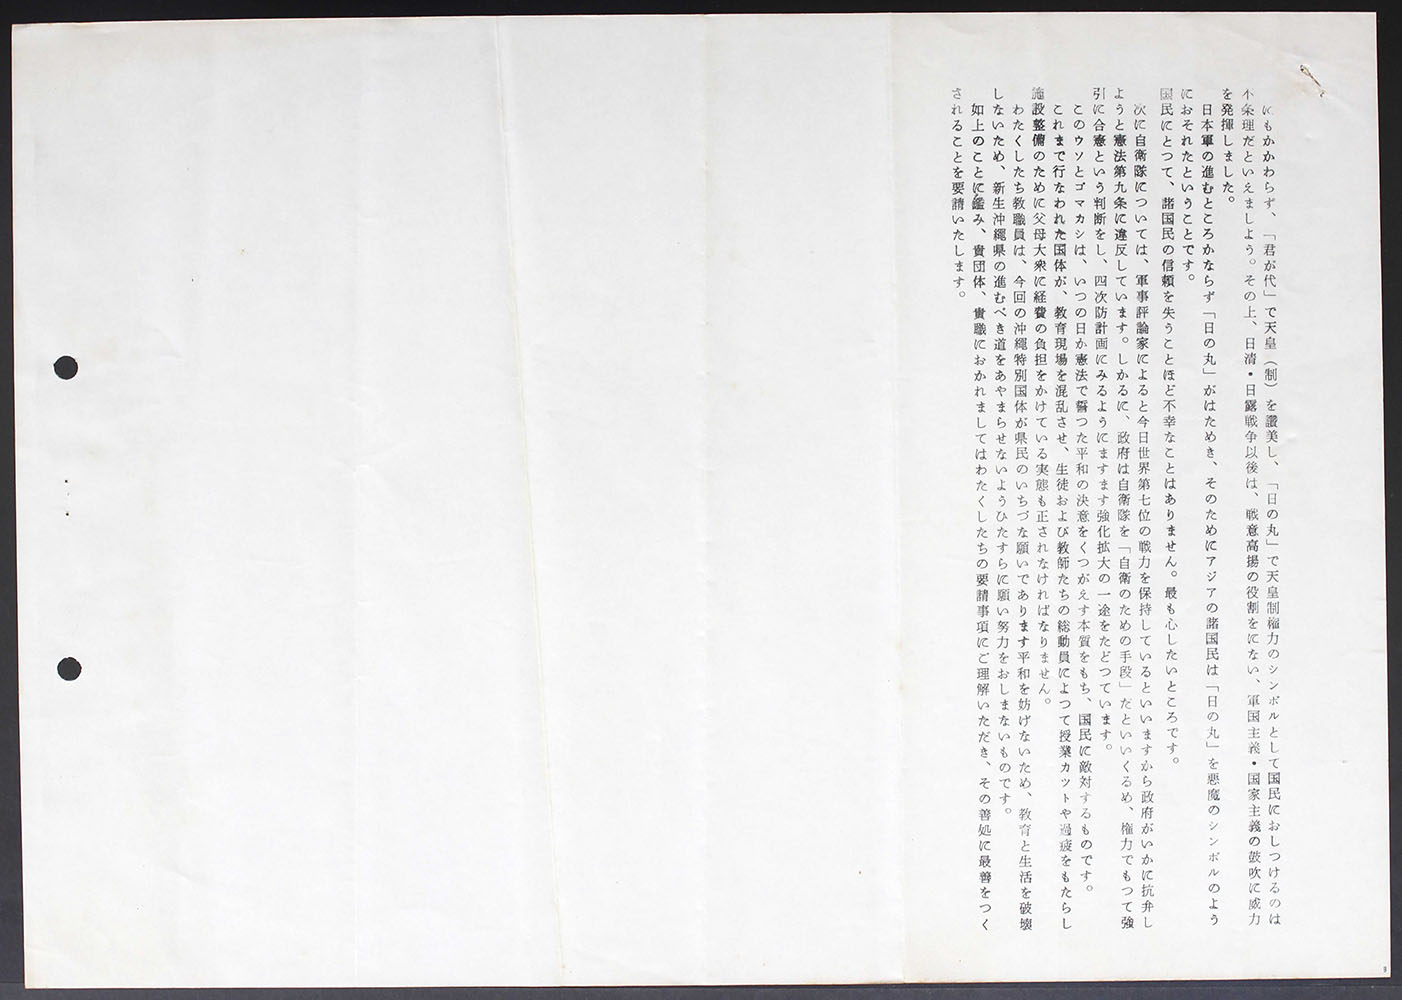 にもかかわらず、「君が代」で天皇（制）を讃美し、「日の丸」で天皇制権力のシンボルとして国民におしつけるのは
不条理だといえましよう。その上、日清・日露戦争以後は、戦意高揚の役割をにない、軍国主義・国家主義の鼓吹に威力
を発揮しました。
日本軍の進むところかならず「日の丸」がはためき、そのためにアジアの諸国民は「日の丸」を悪魔のシンボルのよう
におそれたということです。
国民にとつて、諸国民の信頼を失うことほど不幸なことはありません。最も心したいところです。
次に自衛隊については、軍事評論家によると今日世界第七位の戦力を保持しているといいますから政府がいかに抗弁し
ようと憲法第九条に違反しています。しかるに、政府は自衛隊を「自衛のための手段」だといいくるめ、権力でもつて強
引に合憲という判断をし、四次防計画にみるようにますます強化拡大の一途をたどつています。
このウソとゴマカシは、いつの日か憲法で誓つた平和の決意をくつがえす本質をもち、国民に敵対するものです。
これまで行なわれた国体が、教育現場を混乱させ、生徒および教師たちの総動員によつて授業カツトや過疲をもたらし
施設整備のために父母大衆に経費の負担をかけている実態も正されなければなりません。
わたくしたち教職員は、今回の沖縄特別国体が県民のいちづな願いであります平和を妨げないため、教育と生活を破壊
しないため、新生沖縄県の進むべき道をあやまらせないようひたすらに願い努力をおしまないものです。
如上のことに鑑み、貴団体、貴職におかれましてはわたくしたちの要請事項にご理解いただき、その善処に最善をつく
されることを要請いたします。